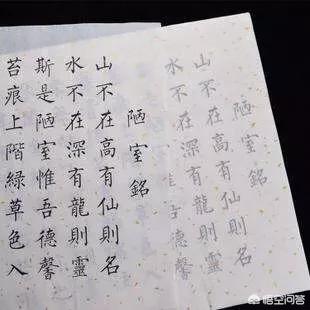 陋室銘
山不在高有仙則名
水不在深有龍則靈
斯是陋室惟吾德馨
苔痕上階綠草色入
陋室銘
山不在高有仙則名
水不在深有龍則靈
悟空问答